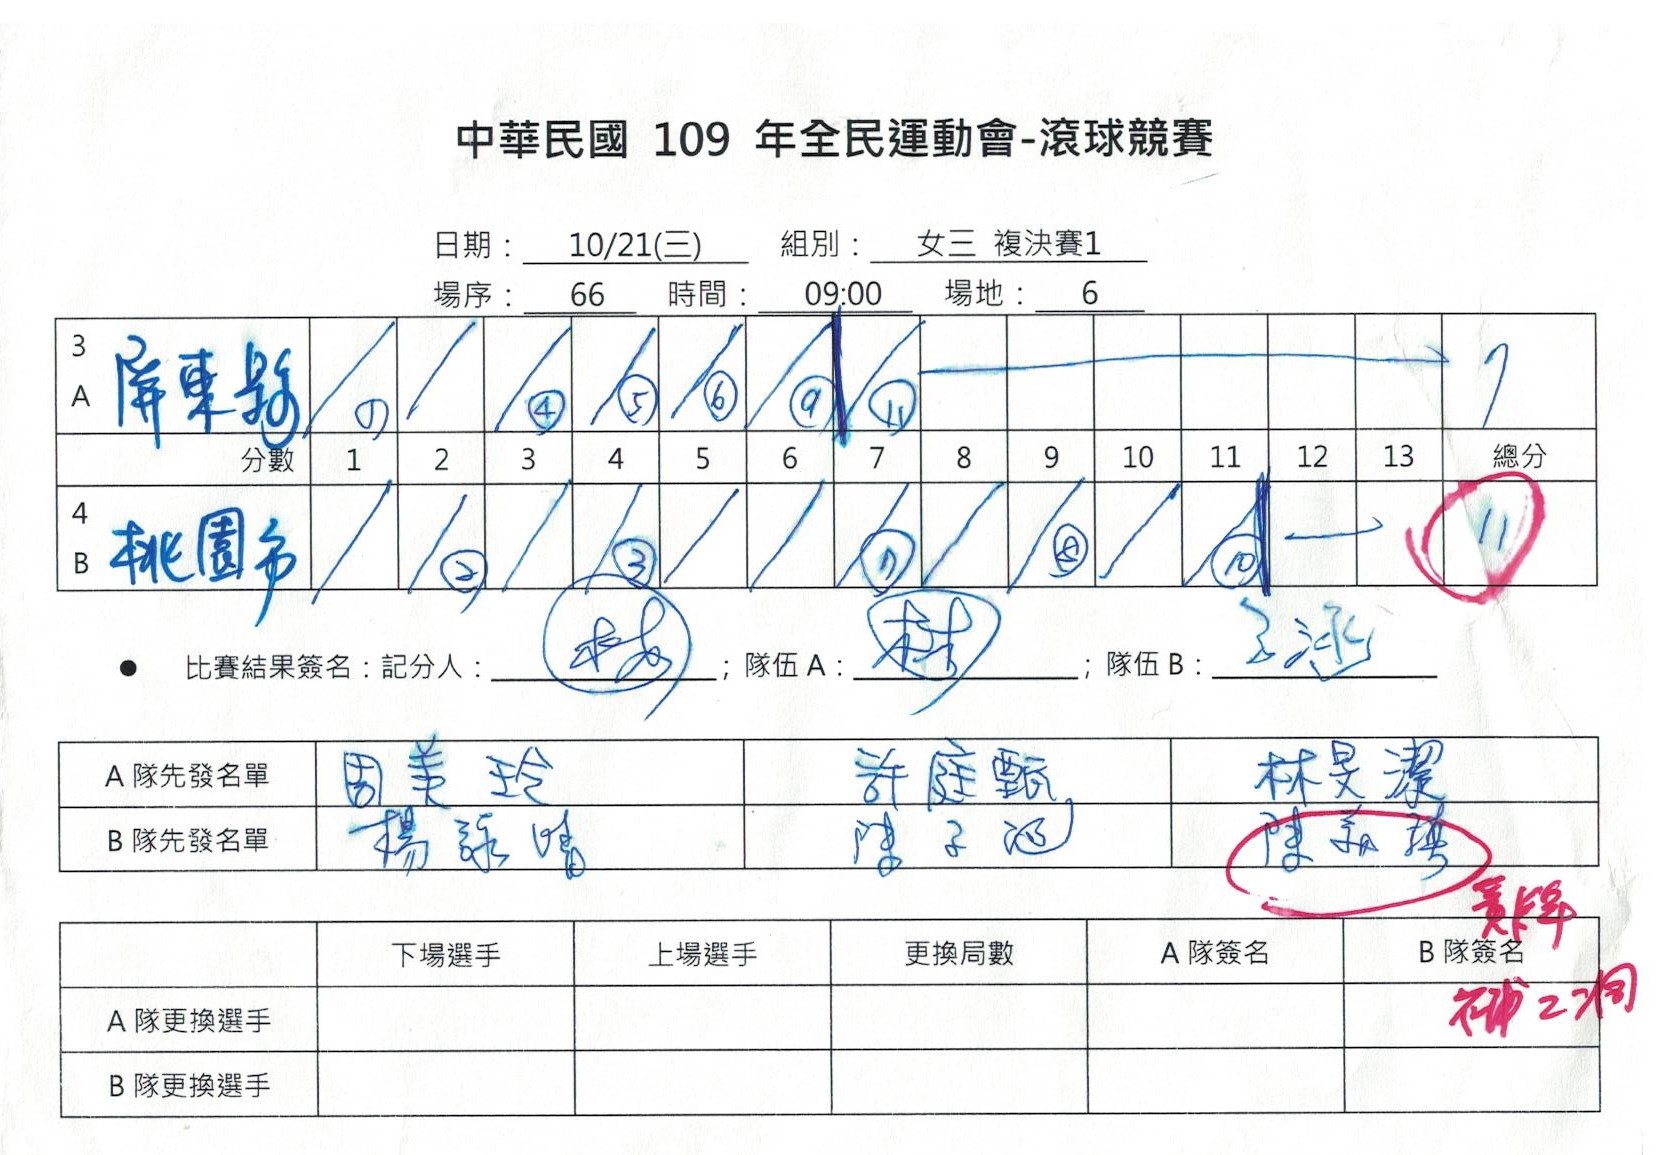 中華民國 109 年全民運動會-滾球競賽
日期： 10/21(三) 組別： 女三 複決賽1
場序： 66 時間： 09:00 場地： 6
3 A 屏東縣 ① ④ ⑤ ⑥ ⑨ ⑪ 7
分數 1 2 3 4 5 6 7 8 9 10 11 12 13 總分
4 B 桃園市 ② ③ ⑦ ⑧ ⑩ 11
● 比賽結果簽名：記分人： ；隊伍 A： ；隊伍 B： 子涵
A 隊先發名單 周美玲 許庭甄 林旻潔
B 隊先發名單 楊詠晴 陳子涵 陳
黃牌
下場選手 上場選手 更換局數 A 隊簽名 B 隊簽名
A 隊更換選手
B 隊更換選手